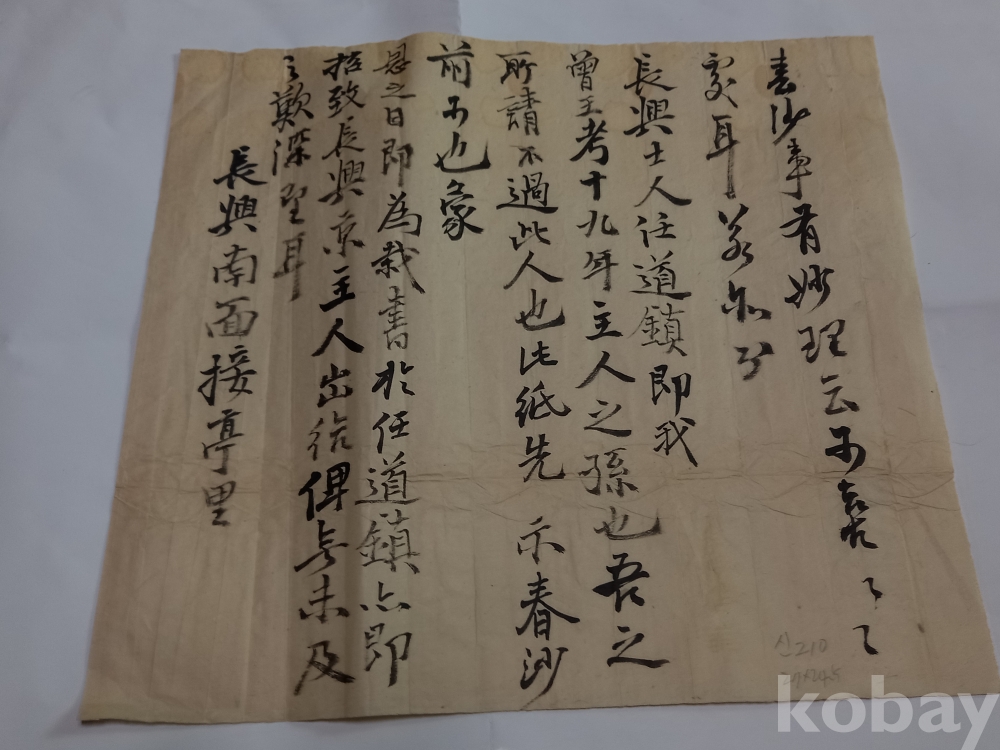 春沙事有妙理云可喜〻〻
處耳 景 公
長興士人任道鎮即我
曾王考十九年主人之孫也吾之
所請不過此人也此紙先 示春沙
前可也象
恩之日即為裁書於任道鎮亦即
招致長興京主人出給俾無未及
之歎深望耳
長興南面接亭里
신210
kobay